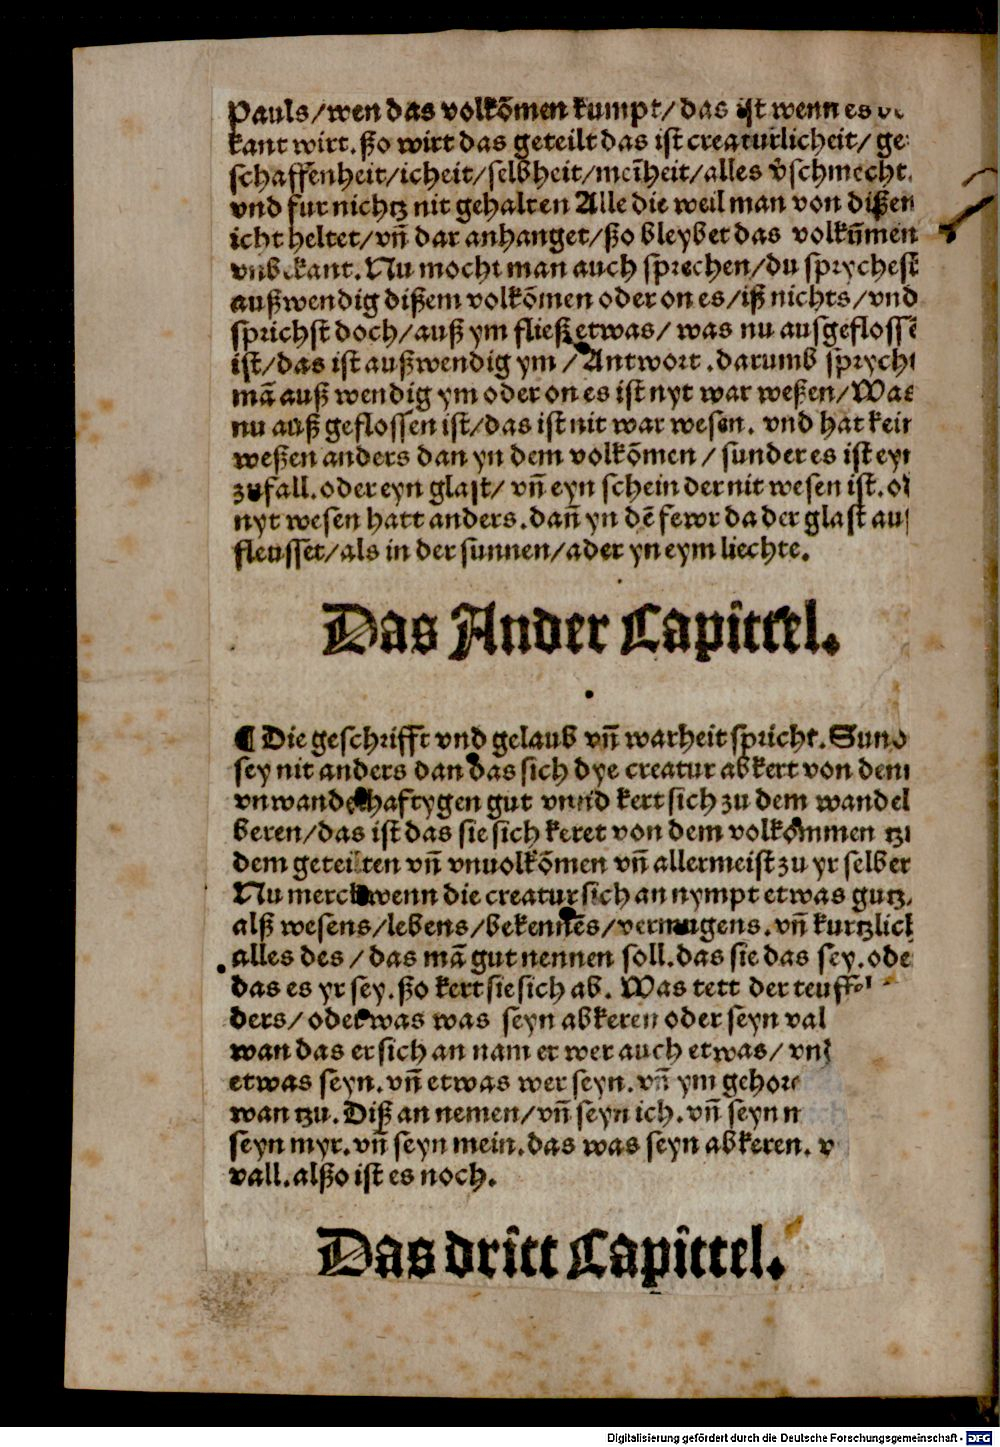 Pauls/wen das volkõmen kumpt/das ist wenn es
kant wirt.ßo wirt das geteilt das ist creaturlicheit/ ge
schaffenheit/icheit/selbheit/meīheit/alles v̄schmecht.
vnd fur nichtz nit gehalten Alle die weil man von dißen
icht heltet/vn̄ dar anhanget/ßo bleybet das volkūmen
vnbekant.Nu mocht man auch sprechen/du sprychest
außwendig dißem volkõmen oder on es/iß nichts/vnd
sprichst doch/auß ym fließ etwas/ was nu ausgeflossē
ist/das ist außwendig ym /Antwort .darumb sprycht
mā auß wendig ym oder on es ist nyt war weßen/Was
nu auß geflossen ist/das ist nit war wesen. vnd hat kein
weßen anders dan yn dem volkõmen / sunder es ist eyn
zufall.oder eyn glast/ vn̄ eyn schein der nit wesen ist.
nyt wesen hatt anders.dan̄ yn dē fewr da der glast
fleusset/als in der sunnen/ader yn eym liechte.
Das Ander Capittel.
¶ Die geschrifft vnd gelaub vn̄ warheit spricht.Sund
sey nit anders dan das sich dye creatur abkert von dem
vnwandelhaftygen gut vnnd kert sich zu dem wandel
beren/das ist das sie sich keret von dem volkommen tzu
dem geteilten vn̄ vnuolkõmen vn̄ allermeist zu yr selber
Nu merck wenn die creatur sich an nympt etwas gutz.
alß wesens/lebens/bekennēs/vermugens.vn̄ kurtzlich
alles des / das mā gut nennen soll.das sie das sey.ode
das es yr sey.ßo kert sie sich ab. Was tett der teuffel
ders/ oder was was seyn abkeren oder seyn val
wan das er sich an nam er wer auch etwas/ vnd
etwas seyn.vn̄ etwas wer seyn.vn̄ ym gehore
wan tzu.Diß an nemen/vn̄ seyn ich.vn̄ seyn
seyn myr.vn̄ seyn mein.das was seyn abkeren.
vall.alßo ist es noch.
Das dritt Capittel.
Digitalisierung gefördert durch die Deutsche Forschungsgemeinschaft - DFG